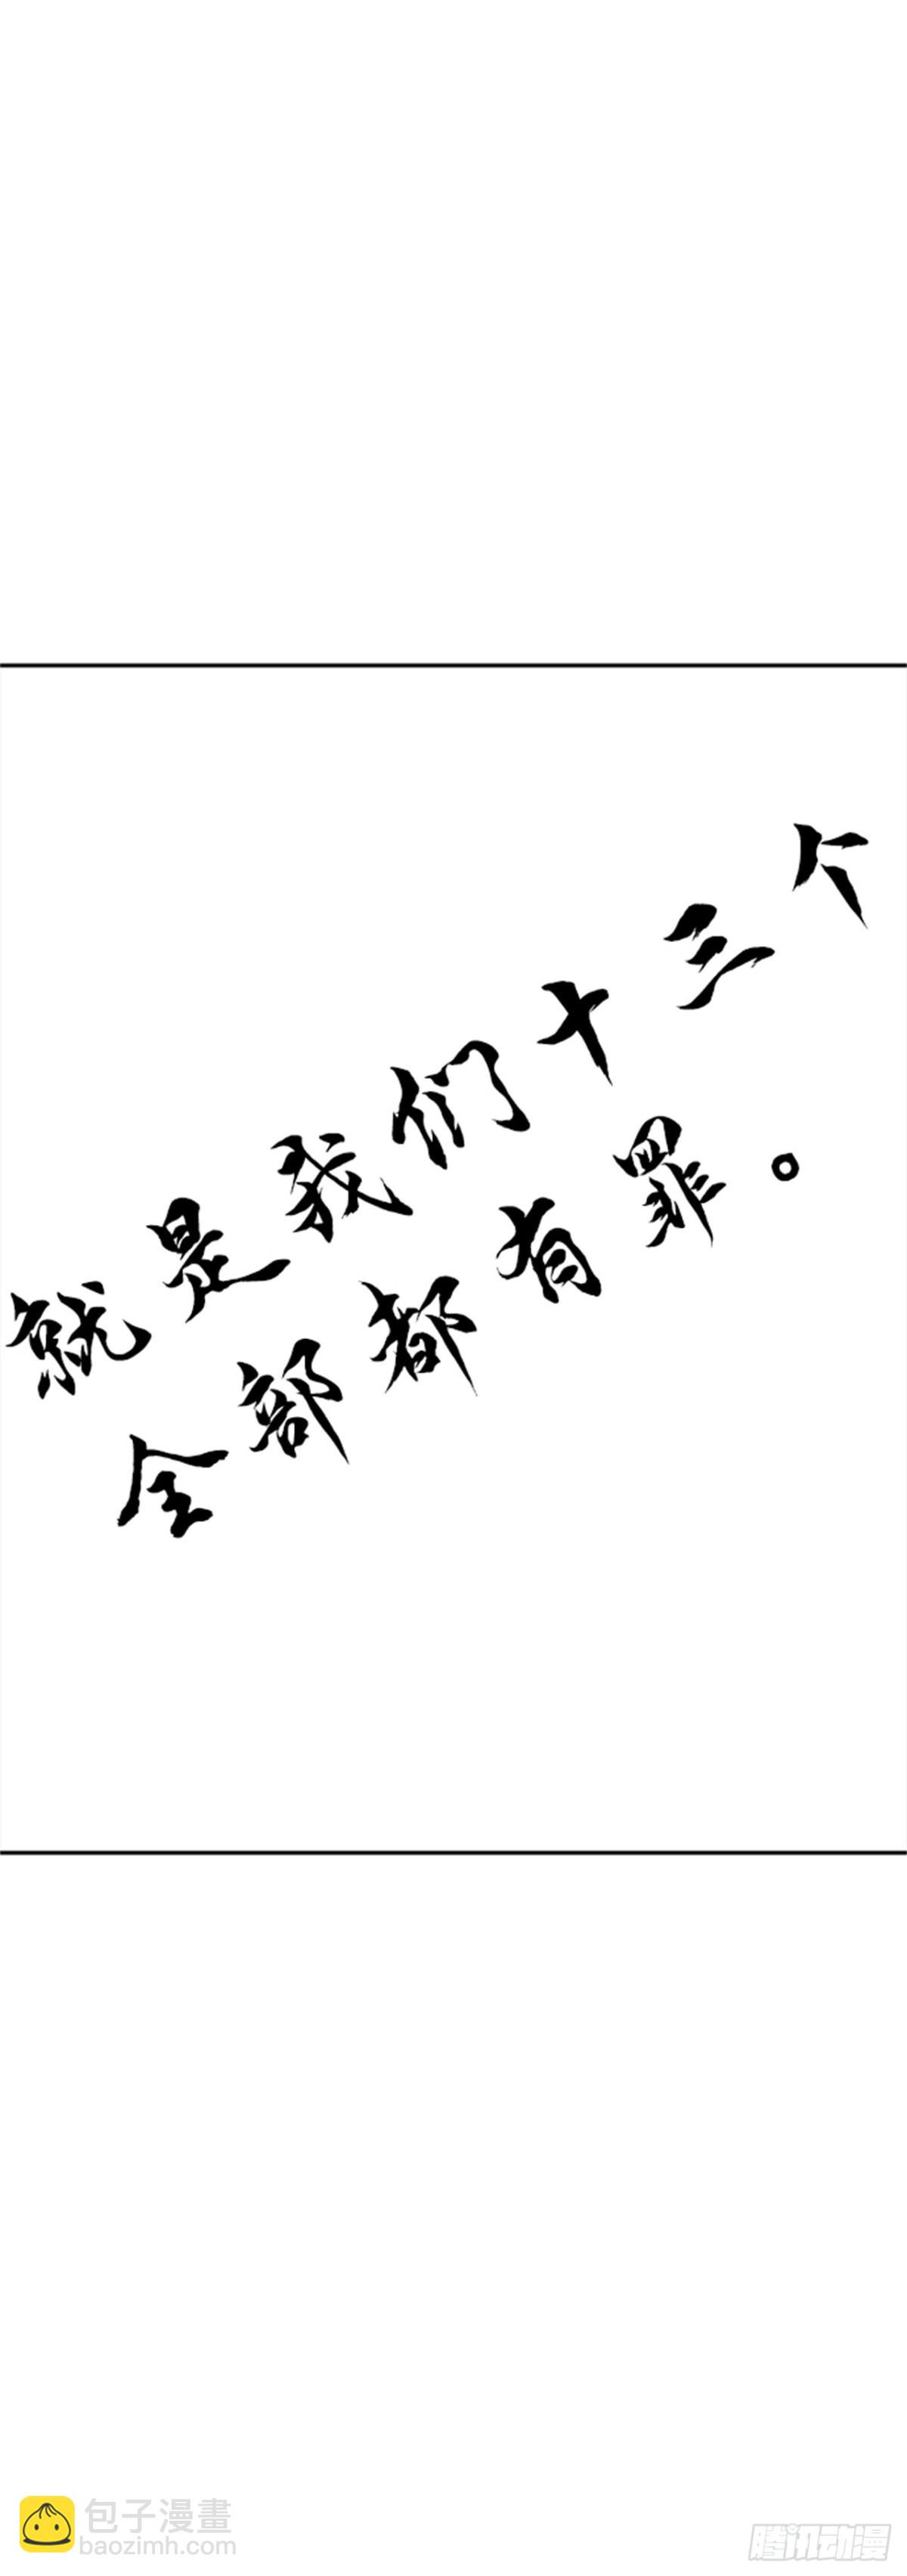 就是我们十三个
全部都有罪。
包子漫畫
baozimh.com
腾讯动漫